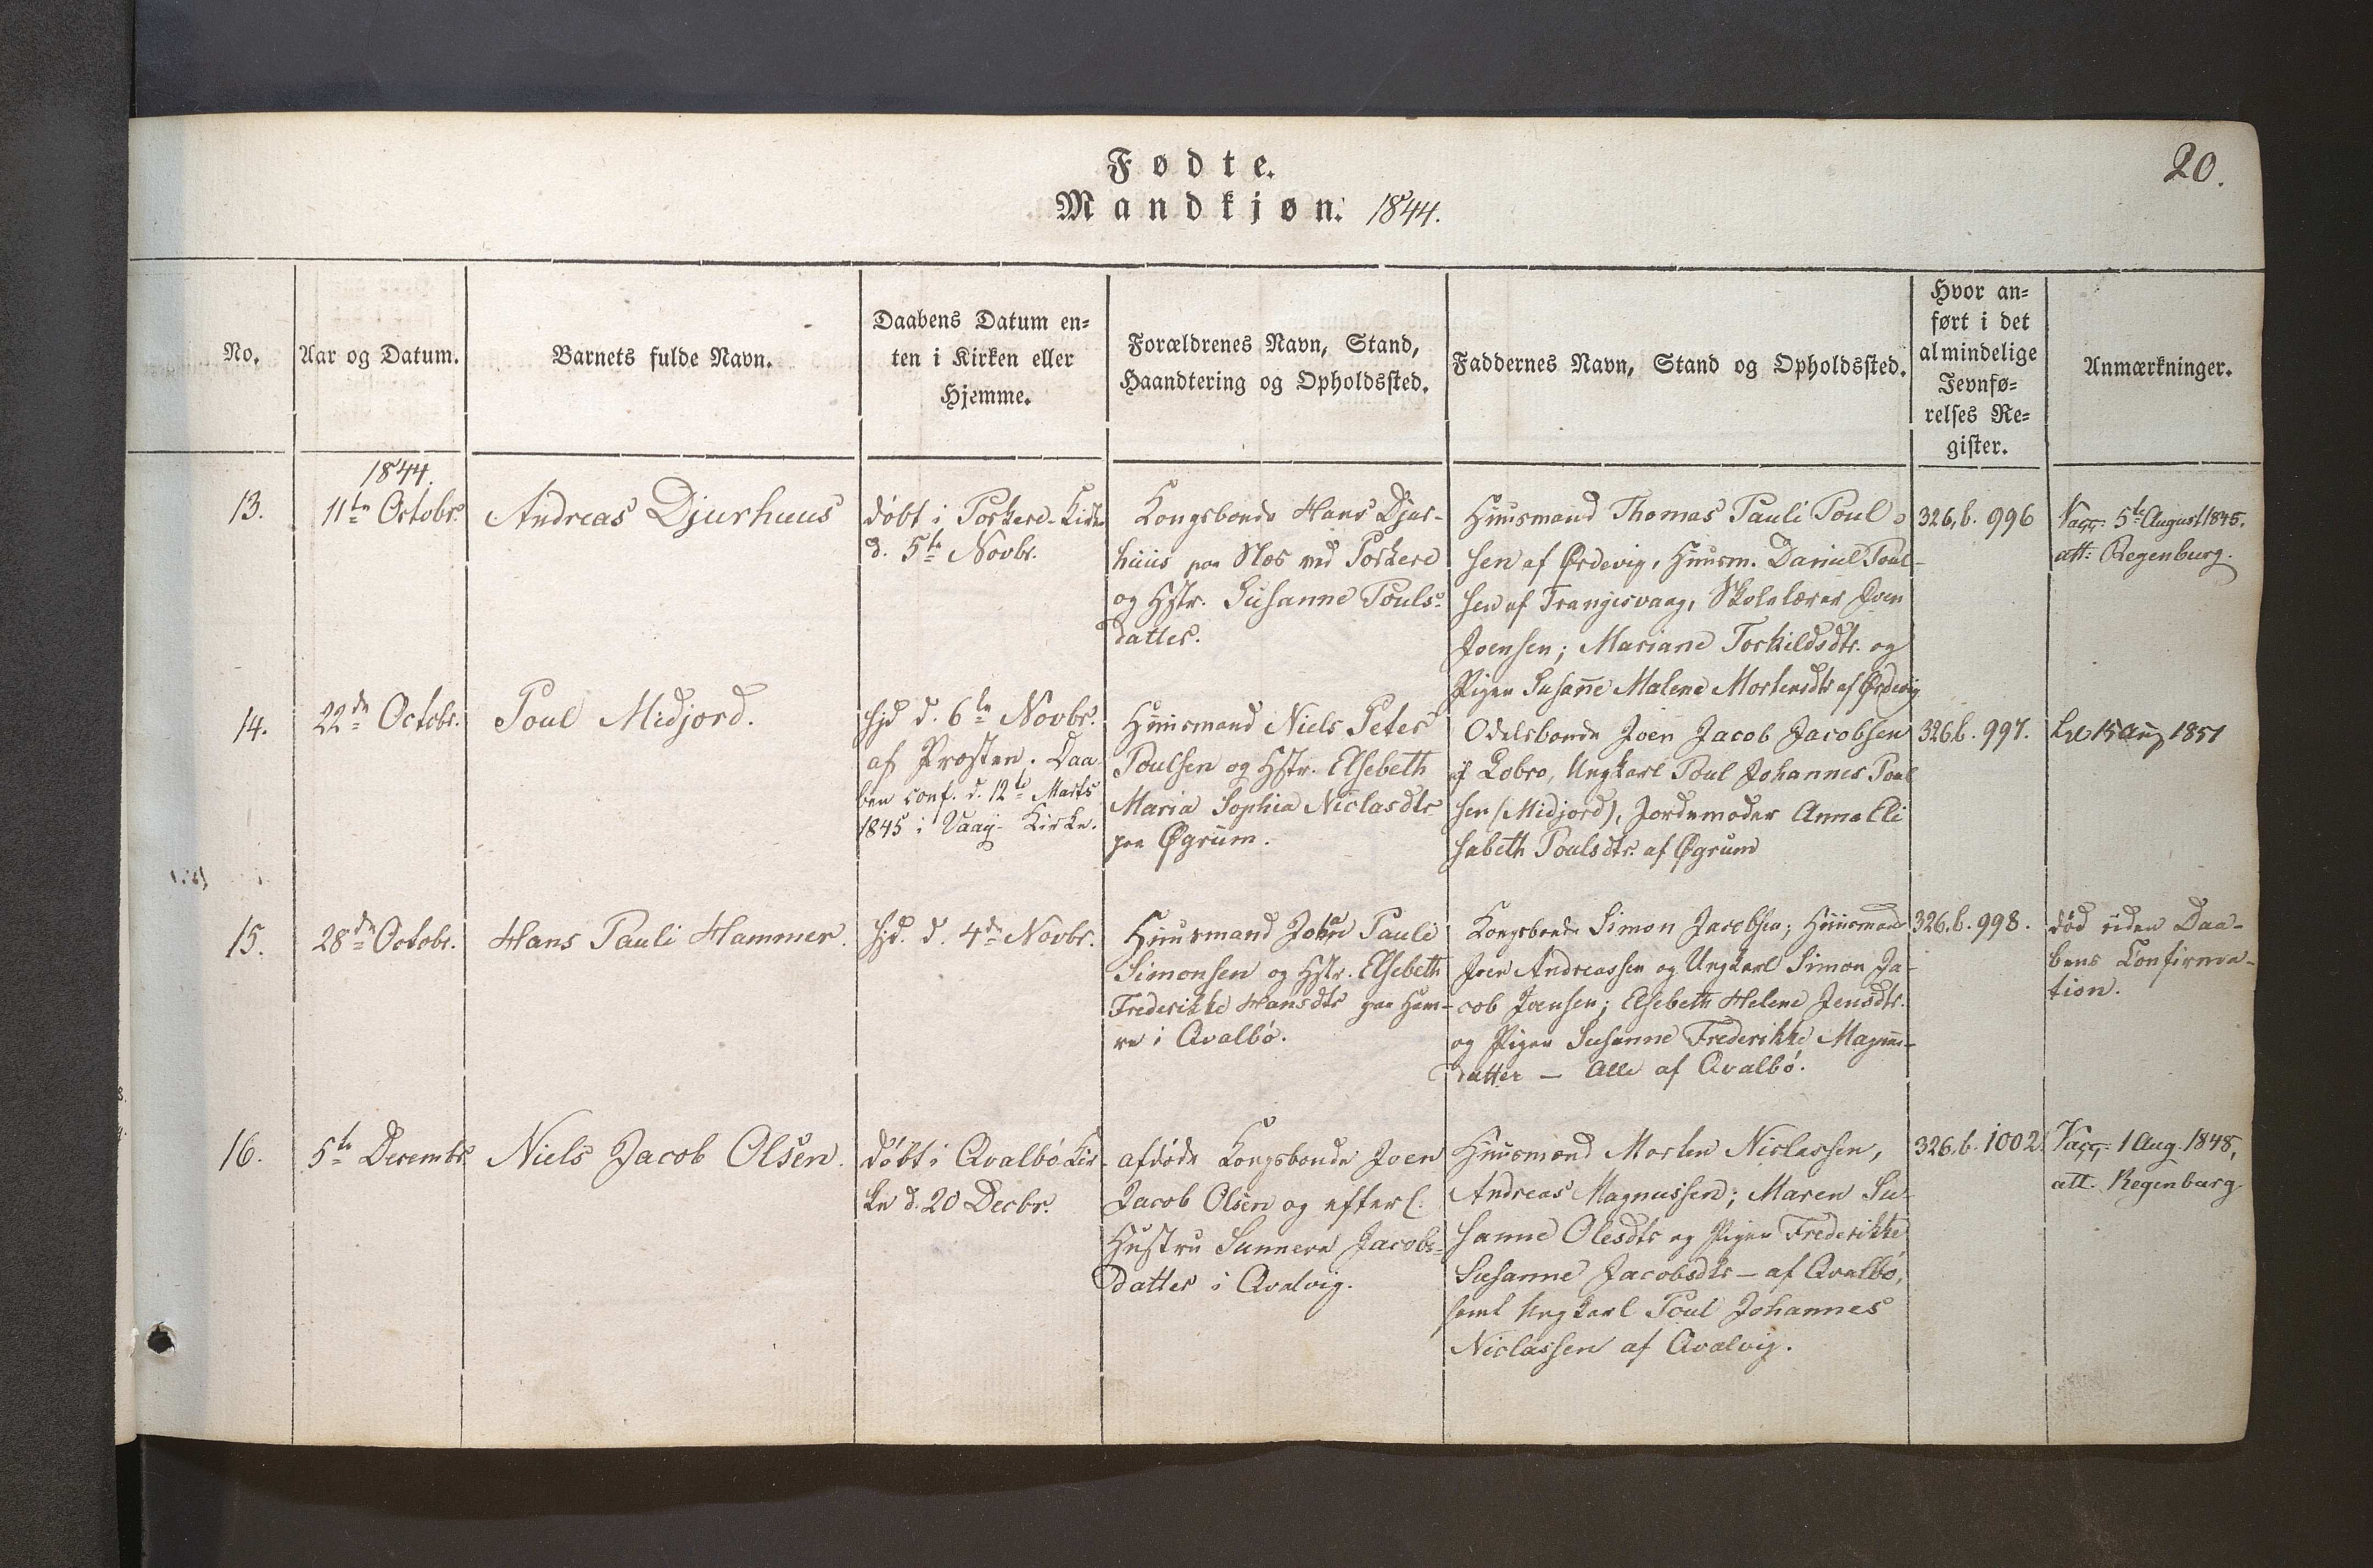 20.
Fødte.
Mandkjøn. 1844.
No.
Aar og Datum.
Barnets fulde Navn.
Daabens Datum en=
ten i Kirken eller
Hjemme.
Forældrenes Navn, Stand,
Haandtering og Opholdssted.
Faddernes Navn, Stand og Opholdssted.
Hvor an=
ført i det
almindelige
Jevnfø=
relses Re=
gister.
Anmærkninger.
1844.
13.
11te Octobr.
Andreas Djurhuus
døbt i Porkere-Kirke
d. 5te Novbr.
Kongsbonde Hans Djur-
huus paa Næs ved Porkere
og Hstr. Susanne Pouls-
datter.
Huusmand Thomas Pauli Poul-
sen af Ørdevig, Huusm. Daniel Poul-
sen af Trangisvaag, Skolelærer Joen
Joensen; Mariane Torkildsdtr. og
Pigen Susanne Malene Mortensdtr af Ørdevig
326,b. 996
Vacc: 5te August 1845.
att: Regenburg.
14.
22de Octobr.
Poul Midjord.
Hjd d. 6te Novbr.
af Præsten. Daa
ben conf. d. 12te Marts
1845 i Vaag-Kirke.
Huusmand Niels Peter
Poulsen og Hstr. Elsebeth
Maria Sophia Niclasdtr
paa Øgrum.
Odelsbonde Joen Jacob Jacobsen
af Lobro, Ungkarl Poul Johannes Poul
sen (Midjord), Jordemoder Anna Eli
sabeth Poulsdtr. af Øgrum
326,b. 997.
15 Aug 1851
15.
28de Octobr.
Hans Pauli Hammer.
Hjd. d. 4de Novbr.
Huusmand Johan Pauli
Simonsen og Hstr. Elsebeth
Frederikke Hansdtr paa Ham-
re i Qvalbø.
Kongsbonde Simon Jacobsen; Huusmand
Joen Andreassen og Ungkarl Simon Ja-
cob Joensen; Elsebeth Helene Jensdtr.
og Pigen Susanne Frederikke Magnus-
datter – Alle af Qvalbø.
326.b. 998.
død uden Daa-
bens Confirma-
tion.
16.
5te Decembr
Niels Jacob Olsen.
døbt i Qvalbø Kir-
ke d. 20 Decbr.
afdøde Kongsbonde Joen
Jacob Olsen og efterl.
Hustru Sunneva Jacobs-
datter i Qvalvig.
Huusmand Morten Niclassen,
Andreas Magnussen; Maren Su-
sanne Olesdtr og Pigen Frederikke
Susanne Jacobsdtr – af Qvalbø,
samt Ungkarl Poul Johannes
Niclassen af Qvalvig.
326.b. 1002.
Vacc: 1 Aug. 1848,
att. Regenburg